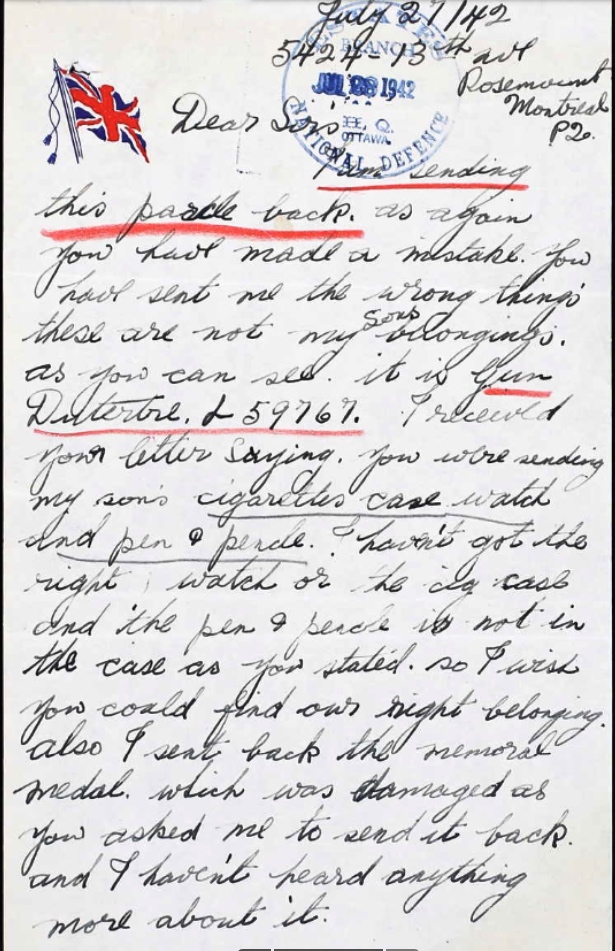 July 27/42
5424-13th ave
Rosemount
Montreal
P2.
ESTATES
BRANCH
JUL 28 1942
H. Q.
OTTAWA
NATIONAL DEFENCE
Dear Sirs
I am sending
this parcle back. as again
you have made a mistake. You
have sent me the wrong things
these are not my sons belongings.
as you can see. it is Gun
Dutertre. L 59767. I receivd
your letter saying. you were sending
my son's cigarettes case watch
and pen & pencle. I haven't got the
right watch or the cig case
and the pen & pencle is not in
the case as you stated. so I wish
you could find our right belonging.
also I sent back the memoral
medal. which was damaged as
you asked me to send it back.
and I haven't heard anything
more about it.